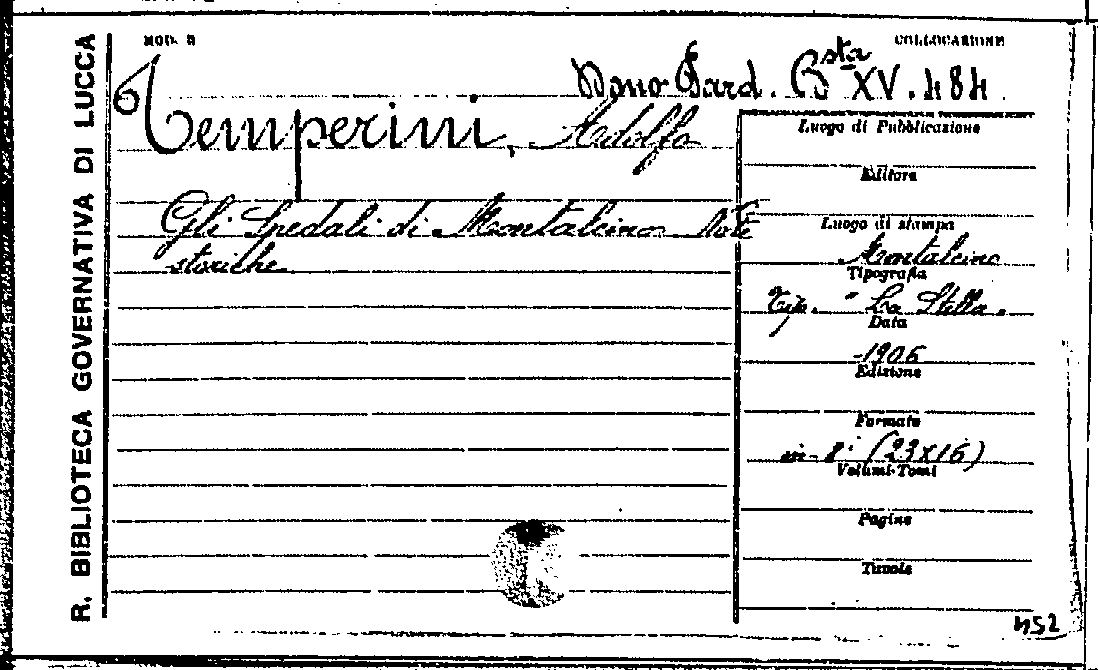 R. BIBLIOTECA GOVERNATIVA DI LUCCA
MOD. B
COLLOCAZIONE
Dono Sard. Bsta XV. 484
Temperini, Adolfo
Gli Spedali di Montalcino. Note
storiche
Luogo di Pubblicazione
Editore
Luogo di stampa
Montalcino
Tipografia
Tip. " La Stella.
Data
1906
Edizione
Formato
in-8° (23x16)
Volumi-Tomi
Pagine
Tavole
452